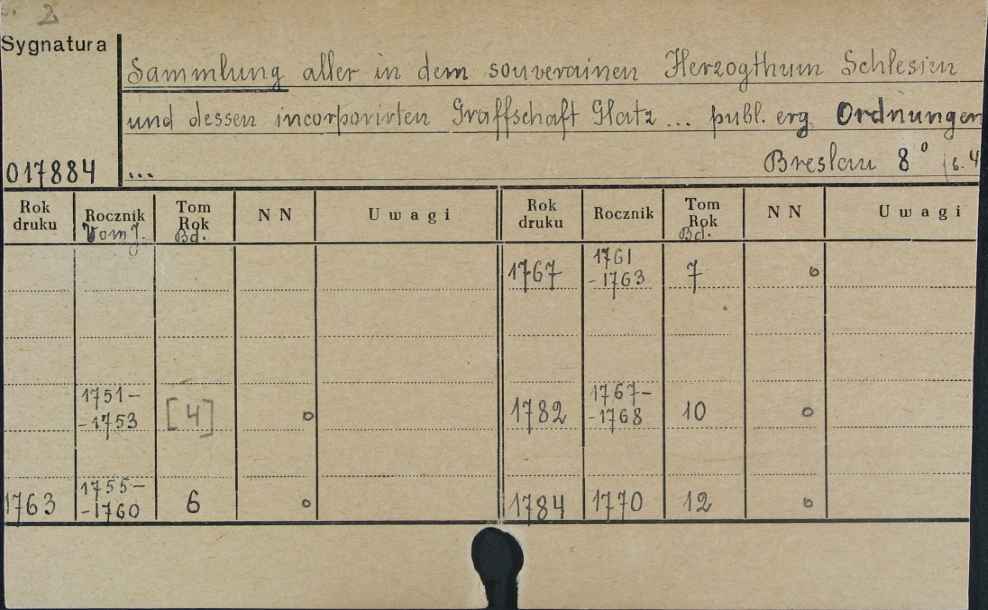 2
Sygnatura
Sammlung aller in dem souverainen Herzogthum Schlesien
und dessen incorporirten Graffschaft Glatz ... publ. erg Ordnungen
017884 ... Breslau 8° (s. 4
Rok druku Rocznik Vom J. Tom Rok Bd. NN Uwagi Rok druku Rocznik Tom Rok Bd. NN Uwagi
1767 1761 -1763 7 o
1751- -1753 [4] o 1782 1767- -1768 10 o
1763 1755- -1760 6 o 1784 1770 12 o